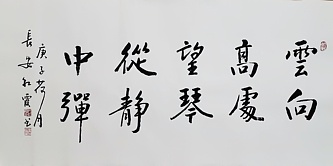 雲向
高處
望琴
從静
中彈
庚子荷月
長安紅霞書